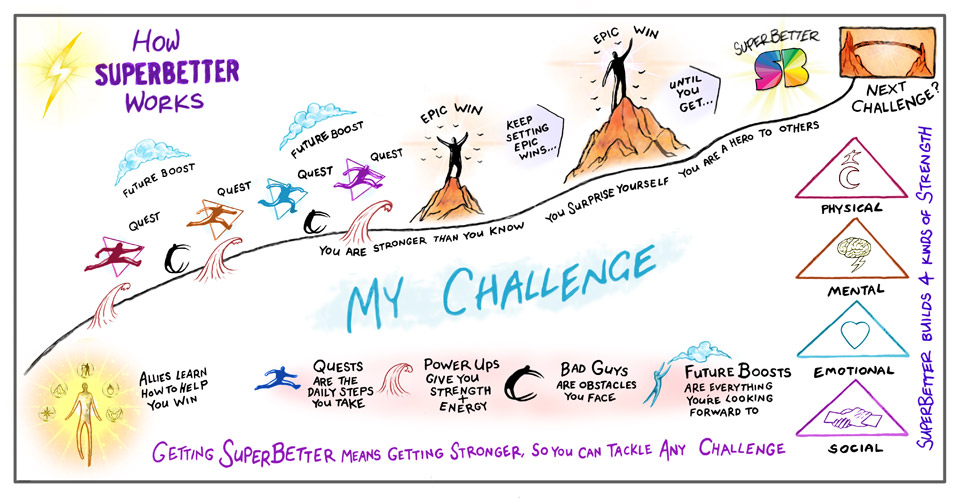 How
SUPERBETTER
WORKS
FUTURE BOOST
FUTURE BOOST
QUEST
QUEST
QUEST
QUEST
EPIC WIN
KEEP
SETTING
EPIC
WINS...
EPIC WIN
UNTIL
YOU
GET...
SUPERBETTER
SB
NEXT
CHALLENGE?
YOU ARE STRONGER THAN YOU KNOW
YOU SURPRISE YOURSELF
YOU ARE A HERO TO OTHERS
MY CHALLENGE
PHYSICAL
MENTAL
EMOTIONAL
SOCIAL
SUPERBETTER BUILDS 4 KINDS OF STRENGTH
ALLIES LEARN
HOW TO HELP
YOU WIN
QUESTS
ARE THE
DAILY STEPS
YOU TAKE
POWER UPS
GIVE YOU
STRENGTH
+
ENERGY
BAD GUYS
ARE OBSTACLES
YOU FACE
FUTURE BOOSTS
ARE EVERYTHING
YOU'RE LOOKING
FORWARD TO
GETTING SUPERBETTER MEANS GETTING STRONGER, SO YOU CAN TACKLE ANY CHALLENGE